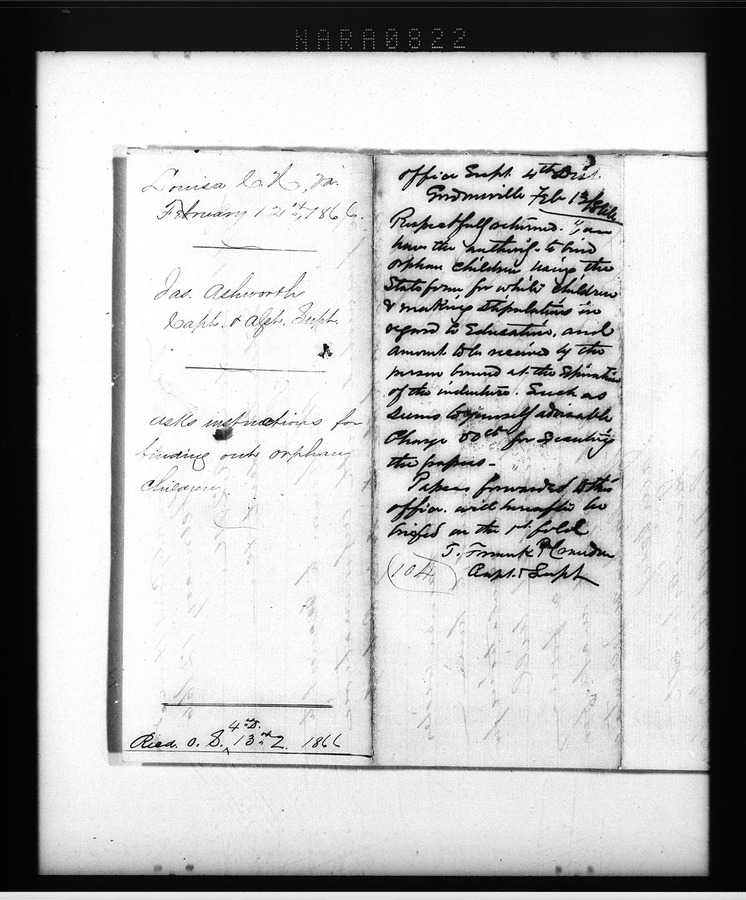 NARA0822
Louisa C. H., Va.
February 12th, 1866.
Jas. Ashworth
Capt. & Asst. Supt.
asks instructions for
binding out orphan
children.
Recd. O. S. 4th D. 13th 2. 1866
Office Supt. 4th Dist.
Gordonsville Feb 13/66
Respectfully returned. You
have the authority to bind
orphan children using the
State form for white children
& making stipulations in
regard to Education, and
amount to be received by the
person bound at the Expiration
of the indenture. Such as
seems to yourself advisable
Charge 50 cts for Executing
the papers -
Papers forwarded to this
office will hereafter be
briefed on the 1st fold
T. Frank P. Crandon
Capt & Supt
(104)